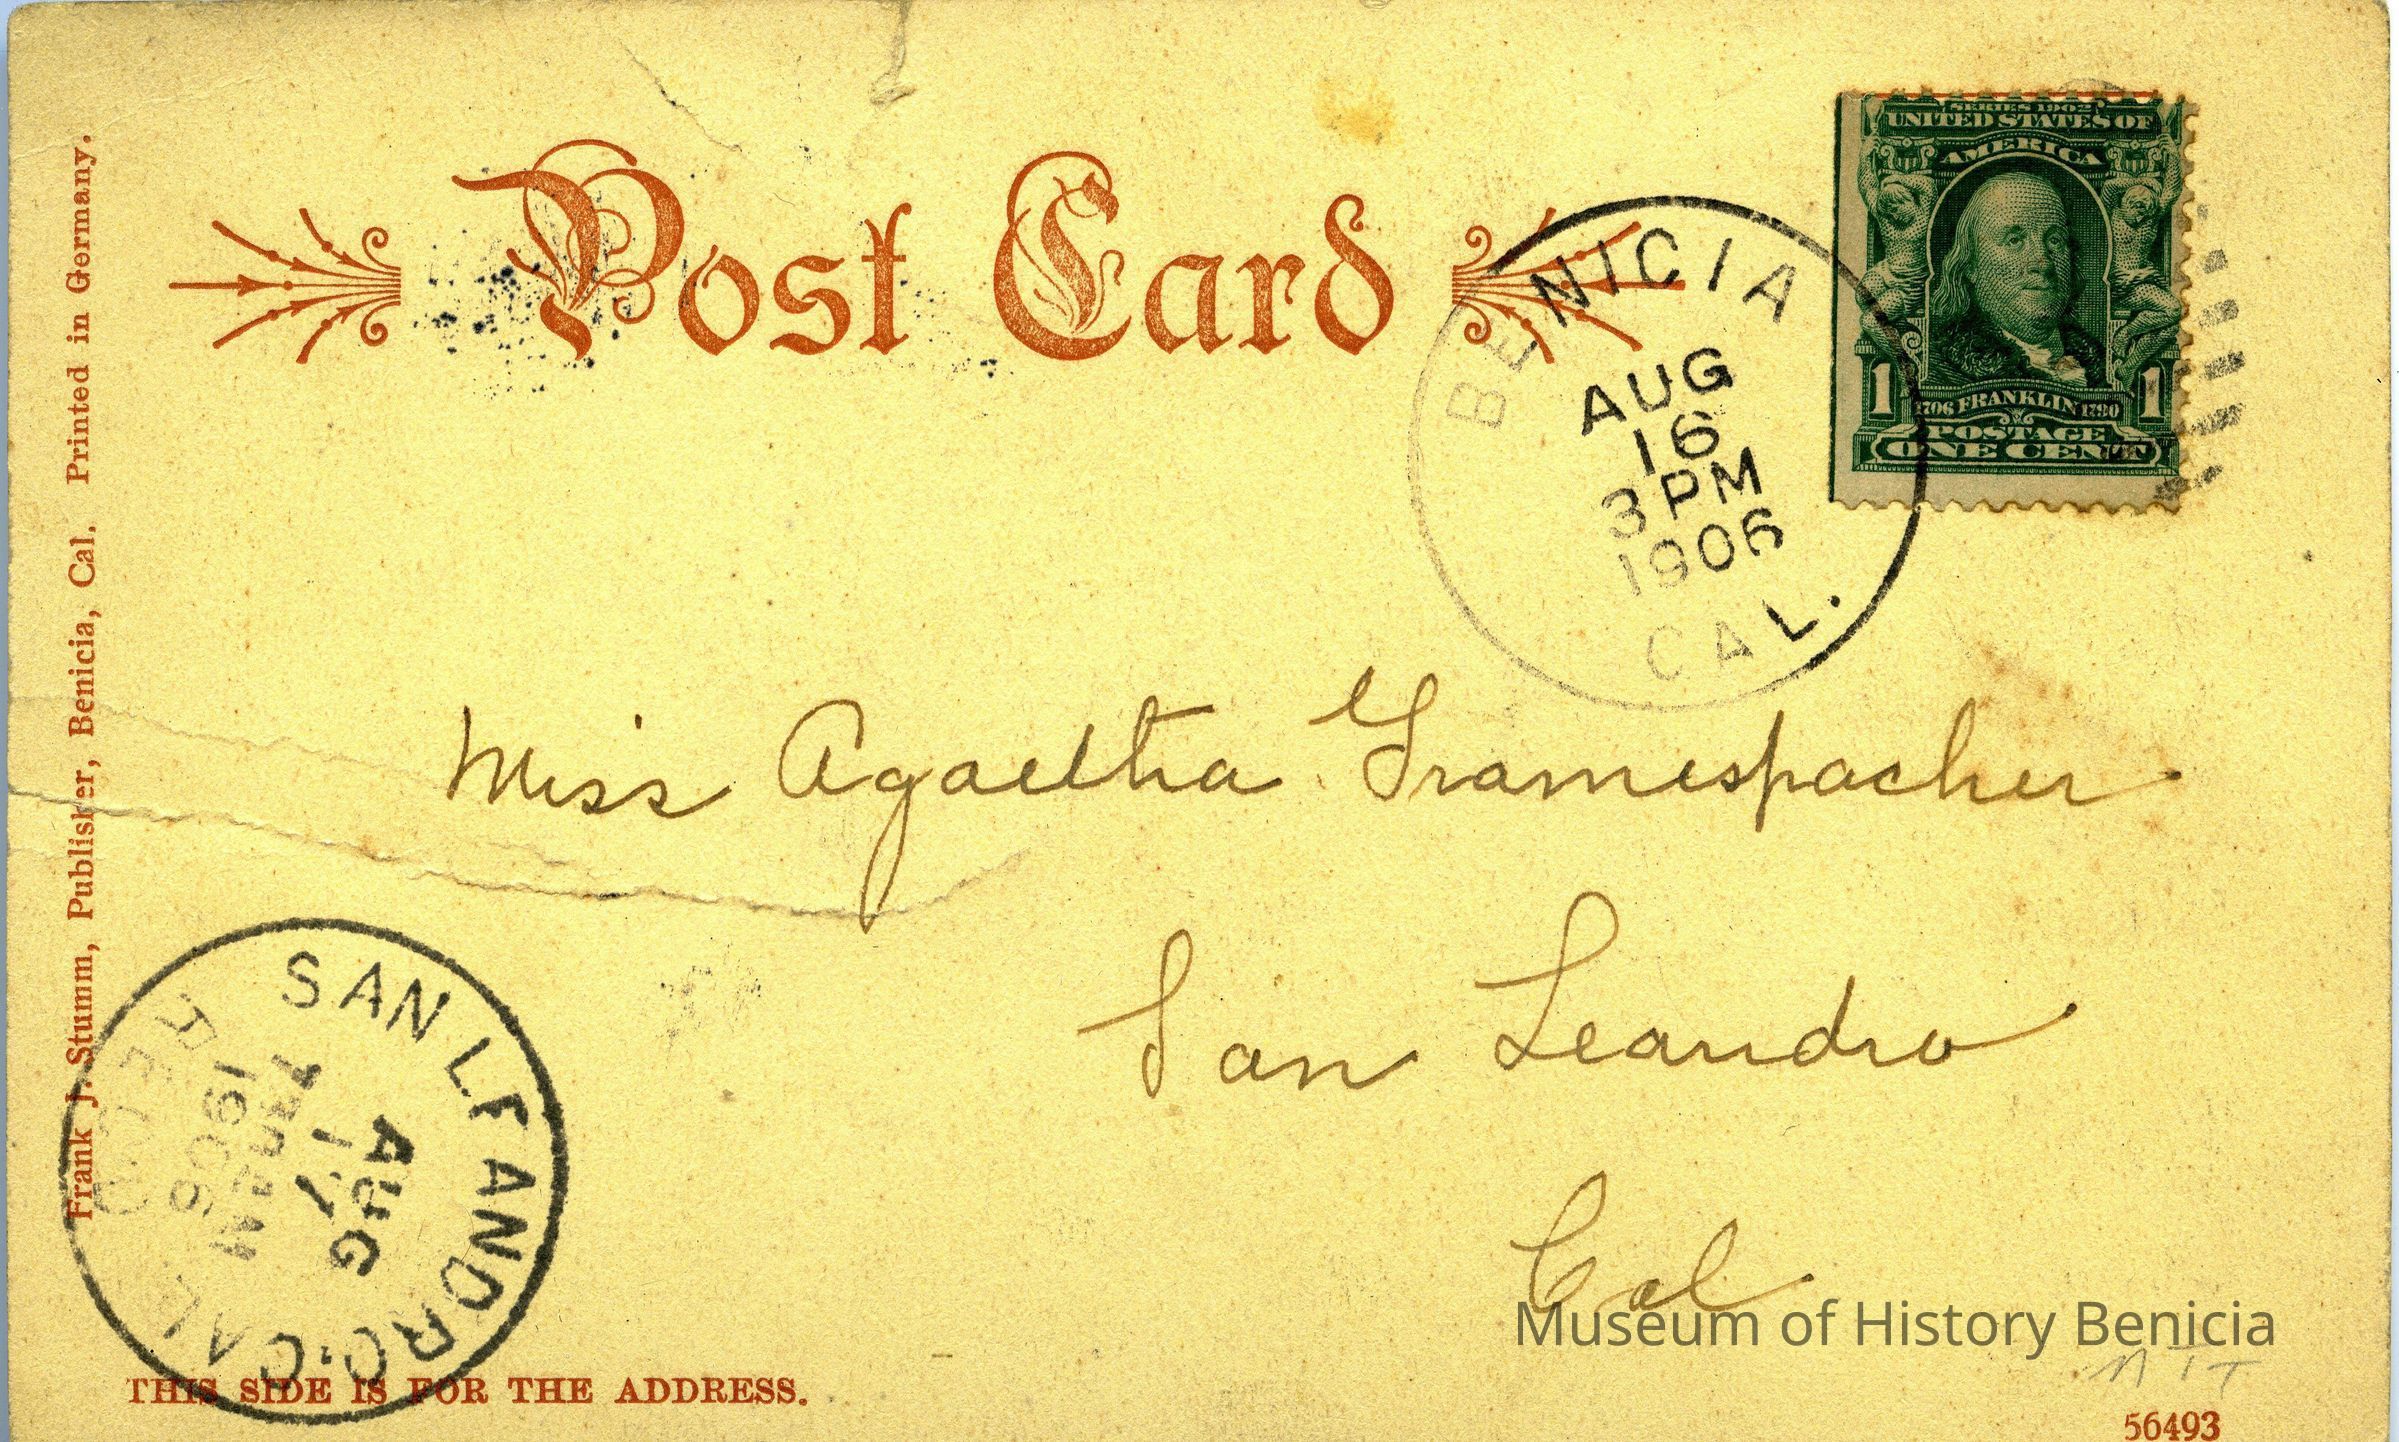 Post Card
SERIES 1902
UNITED STATES OF
AMERICA
1 1706 FRANKLIN 1790 1
POSTAGE
ONE CENT
BENICIA
AUG
16
3 PM
1906
CAL.
Frank J. Stumm, Publisher, Benicia, Cal. Printed in Germany.
Miss Agaetha Gramespacher
San Leandro
Cal
SAN LEANDRO. CAL
REC'D
AUG
17
1906
THIS SIDE IS FOR THE ADDRESS.
Museum of History Benicia
56493